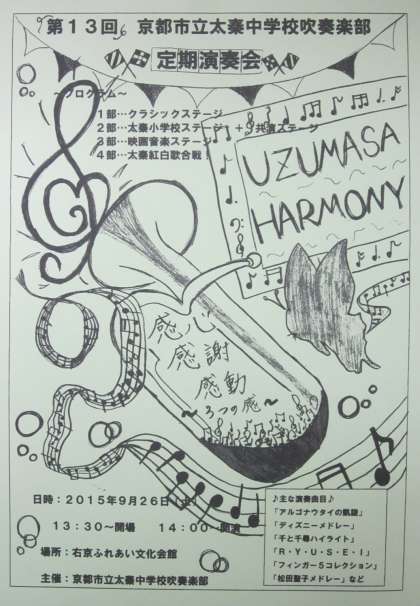 第13回 京都市立太秦中学校吹奏楽部
定期演奏会
～プログラム～
1部…クラシックステージ
2部…太秦小学校ステージ ＋ 共演ステージ
3部…映画音楽ステージ
4部…太秦紅白歌合戦！
UZUMASA
HARMONY
感心
感謝
感動
～3つの感～
日時：2015年9月26日（土）
13：30～開場 14：00～開演
場所：右京ふれあい文化会館
主催：京都市立太秦中学校吹奏楽部
♪主な演奏曲目♪
「アルゴナウタイの凱旋」
「ディズニーメドレー」
「千と千尋ハイライト」
「R・Y・U・S・E・I」
「フィンガー5コレクション」
「松田聖子メドレー」など